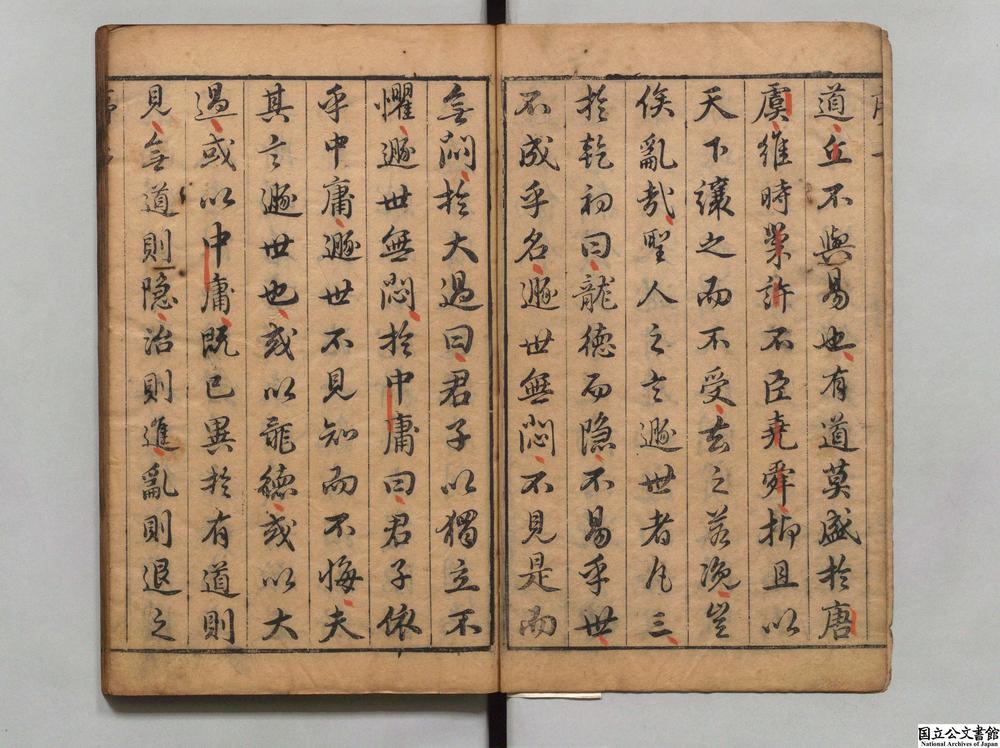 道丘不與易也有道莫盛於唐
虞維時巢許不臣堯舜抑且以
天下讓之而不受去之若浼豈
俟亂哉聖人之言遯世者凡三
於乾初曰龍德而隱不易乎世
不成乎名遯世無悶不見是而
無悶於大過曰君子以獨立不
懼遯世無悶於中庸曰君子依
乎中庸遯世不見知而不悔夫
其言遯世也或以龍德或以大
過或以中庸既已異於有道則
見無道則隱治則進亂則退之
国立公文書館
National Archives of Japan